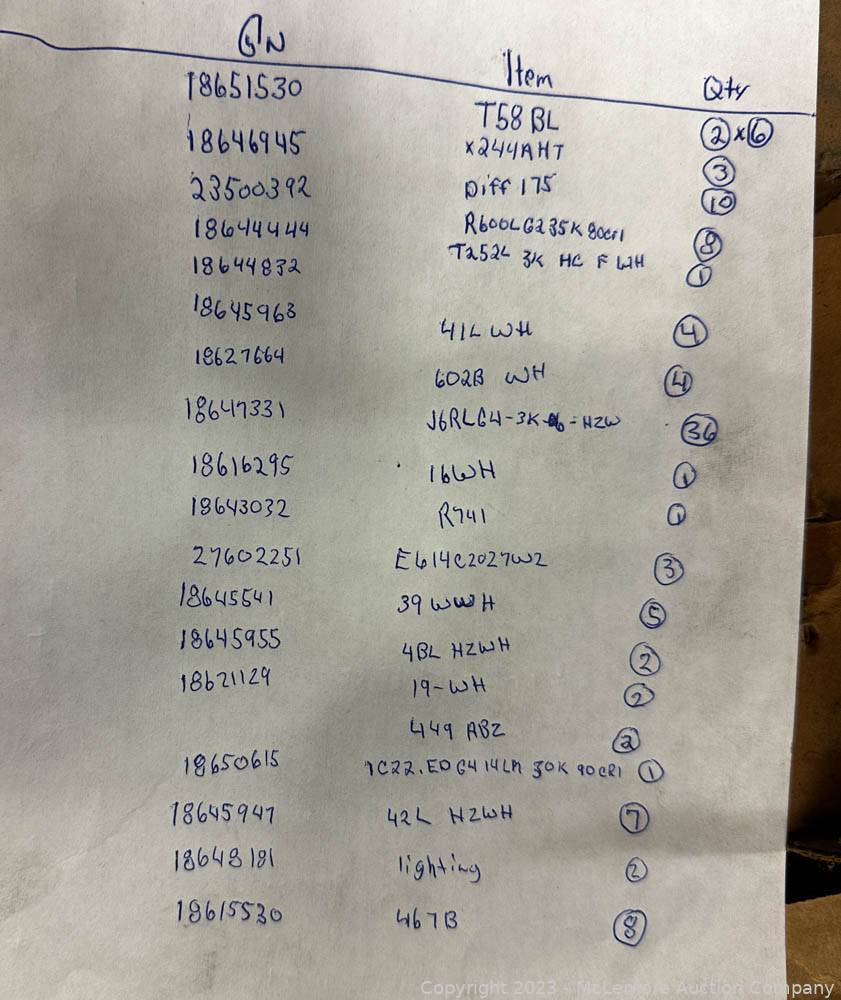 GN Item Qty
18651530 T58 BL 2 x 6
18646945 x244AHT 3
23500392 Diff 175 10
18644444 R600LG235K 80cri 8
18644832 T252L 3K HC F WH 1
18645963 41L WH 4
18627664 602B WH 4
18647331 J6RLG4-3K- = HZW 36
18616295 16WH 1
18643032 R741 1
27602251 E614C2027W2 3
18645541 39 WWH 5
18645955 4BL HZWH 2
18621129 19-WH 2
449 ABZ 2
18650615 1C22.EDG414LM 30K 90CRI 1
18645947 42L HZWH 7
18648181 lighting 2
18615530 467B 8
Copyright 2023 - McLemore Auction Company